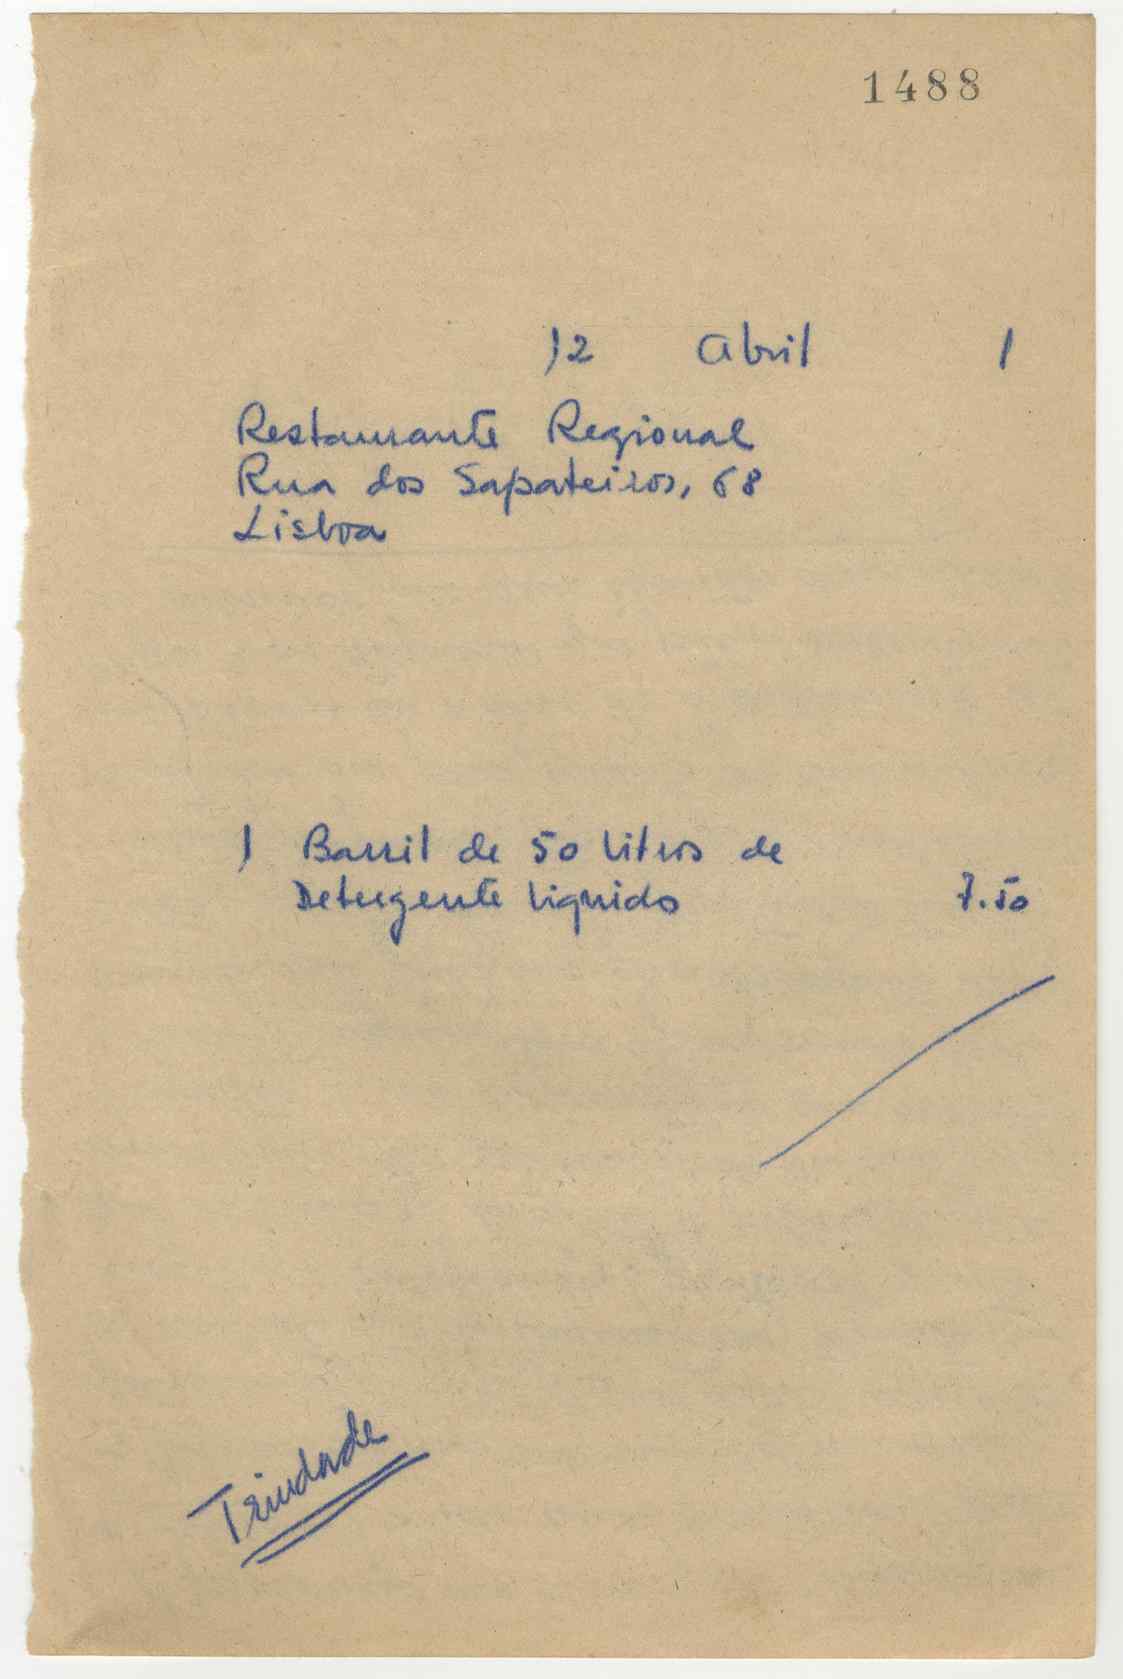 1488
12 Abril 1
Restaurante Regional
Rua dos Sapateiros, 68
Lisboa
1 Barril de 50 litros de
Detergente liquido 7.50
Trindade